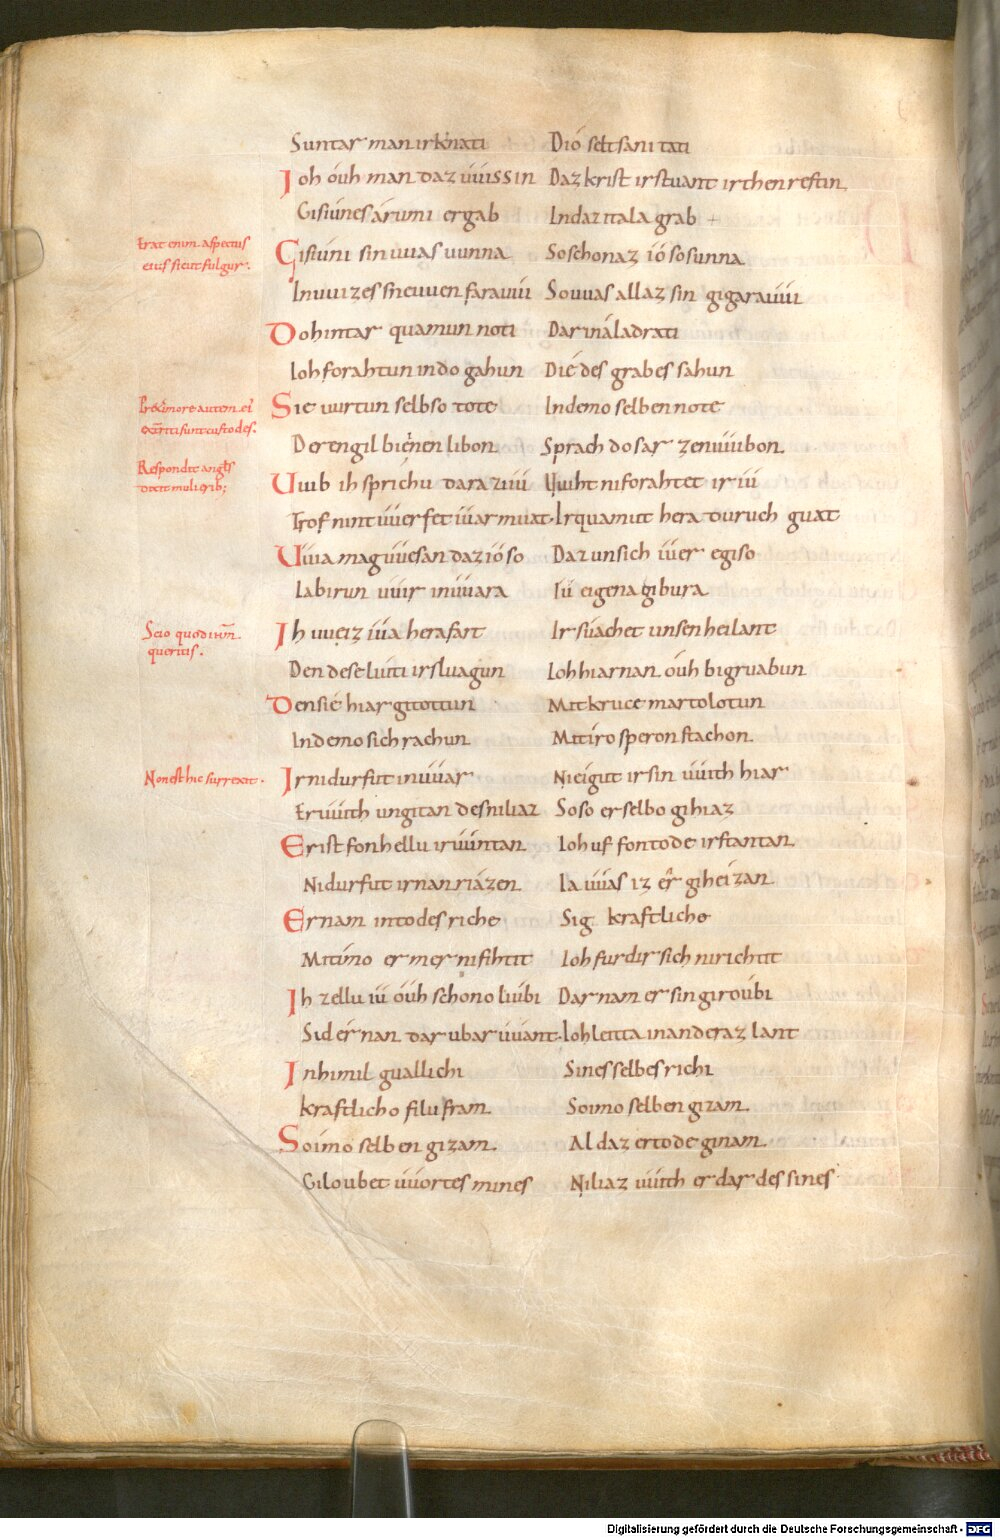 Suntar man irknati Dio seltsani tati
Ioh óuh man daz uuissin Daz krist irstuant ir then restin
Gisiúnes árumi ergab In daz itala grab
Erat enim aspectus
eius sicut fulgur.
Gisiúni sin uuas uunna So schonaz ió so sunna
In uuizes sneuuen farauui So uuas allaz sin gigarauui
Do hintar quamun noti Dar in áladrati
Ioh forahtun in do gahun Dié des grabes sahun
Sie uurtun selb so tote In demo selben note
Der engil bi énen libon Sprach do sar zen uuibon
Respondit angls
dicit mulierib;
Uuib ih sprichu dara ziu Uuiht ni forahtet ir iu
Drof ni intuuerfet iuar muat. Ir quamut hera duruch guat
Uuia mag uuesan daz ió so Daz unsich iuer egiso
Labirun uuir in uuara Iu eigena gibura
Scio quod ihm
queritis.
Ih uueiz iua herafart Ir suachet unsen heilant
Den dese luiti irsluagun Ioh hiar nan óuh bigruabun
Den sié hiar gitottun Mit kruce martolotun
In demo sich rachun Mit iro speron stachon
Non est hic surrexit.
Ir ni durfut in uuar Ni eigut ir sin uuith hiar
Er uuith ungitan des ni liaz Soso er selbo gihiaz
Er ist fon hellu iruuintan Ioh uf fon tode irstantan
Ni durfut ir nan riázen Ia uuas iz ér giheizan
Er nam in todes riche Sig kraftliche
Mit imo er mer ni fihtit Ioh furdir sich ni richtit
Ih zellu iu óuh schono liubi Dar nam er sin giroubi
Sid ér nan dar ubar uuant. Ioh leitta in anderaz lant
In himil guallichi Sines selbes richi
Kraftlicho filu fram So imo selben gizam
So imo selben gizam. Al daz er tode ginam
Giloubet uuortes mines Ni liaz uuith er dar des sines